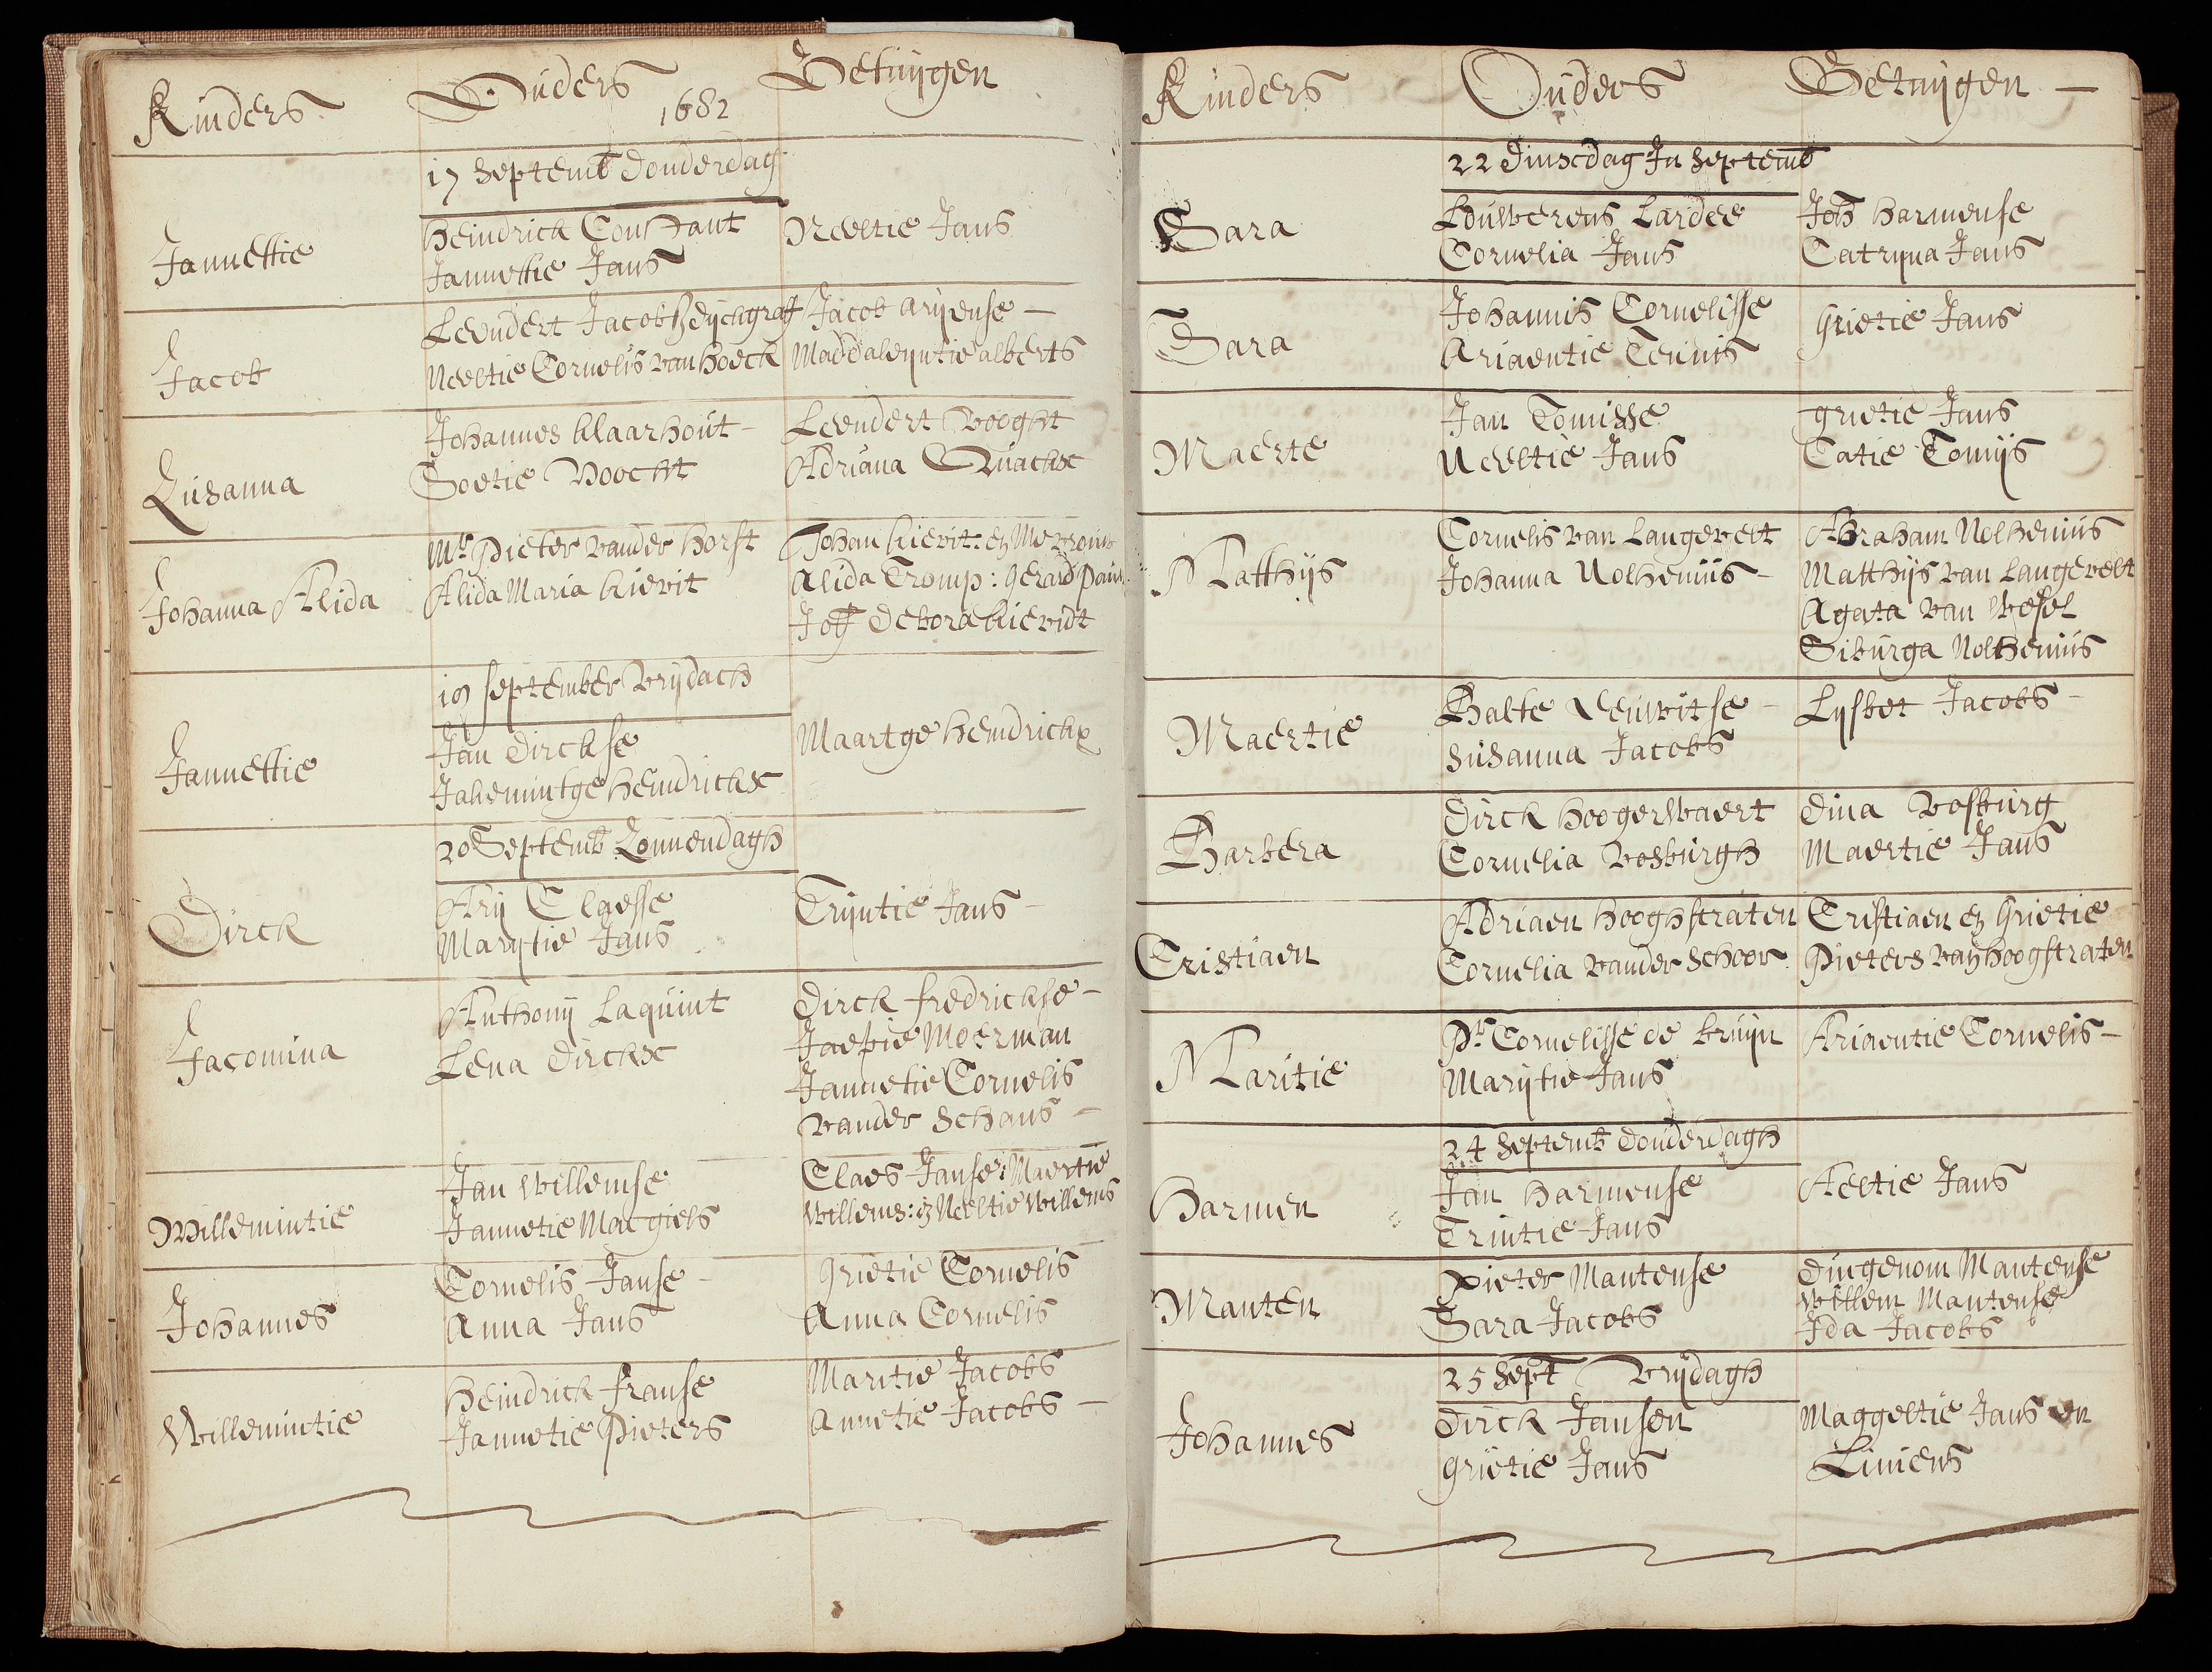 Kinders Ouders Getuijgen
1682
17 Septemb Donderdag
Jannettie
Heindrick Constant
Jannettie Jans
Neeltie Jans
Jacob
Leendert Jacobs
Neeltie Cornelis van Hoeck
Jacob Arijense
Maddaleyntie alberts
Zusanna
Johannes klaarhout
Soetie Voocht
Leendert Vooght
Adriana Quackx
Johanna Alida
Mr Pieter vander Horst
Alida Maria kievit
Johan kievit: en Mevrouw
Alida Tromp: Gerard
Joff Debora kievidt
September vrijdach
Jannettie
Jan Dirckse
Jakemintge Heindrickx
Maartge Heindrickx
20 Septemb Zonnendagh
Dirck
Arij Claesse
Marijtie Jans
Trijntie Jans
Jacomina
Anthonij Laquint
Lena Dirckx
Dirck fredrickse
Jaepie Moerman
Jannetie Cornelis
vander Schans
Willemintie
Jan Willemse
Jannetie Macgiels
Claes Janse: Maertie
Willems: en Neeltie Willems
Johannes
Cornelis Janse
Anna Jans
Grietie Cornelis
Anna Cornelis
Willemintie
Heindrick franse
Jannetie Pieters
Maritie Jacobs
Annetie Jacobs
Kinders Ouders Getuijgen
22 Dinscdag In Septemb
Sara
Louwerens Lardee
Cornelia Jans
Joh Harmense
Catryna Jans
Sara
Johannis Cornelisse
Ariaentie Teunis
Grietie Jans
Maerte
Jan Tonisse
Neeltie Jans
grietie Jans
Catie Tonijs
Matthijs
Cornelis van Langevelt
Johanna Nolthenius
Abraham Nolthenius
Matthijs van Langevelt
Agata van Wesel
Siburga Nolthenius
Maertie
Balte Leuwitse
Susanna Jacobs
Lysbet Jacobs
Barbera
Dirck Hoogerwaert
Cornelia Vosburgh
Dina Vosburg
Maertie Jans
Cristiaen
Adriaen Hooghstraten
Cornelia vander Schoor
Cristiaen en Grietie
Pieters van Hoogstraten
Maritie
Pr Cornelisse de bruijn
Marijtie Jans
Ariaentie Cornelis
24 Septemb Donderdagh
Harmen
Jan Harmense
Trintie Jans
Aeltie Jans
Manten
Pieter Mantense
Sara Jacobs
Dingenom Mantense
Willem Mantense
Ida Jacobs
25 Sept Vrijdagh
Johannes
Dirck Jansen
grietie Jans
Maggeltie Jans en